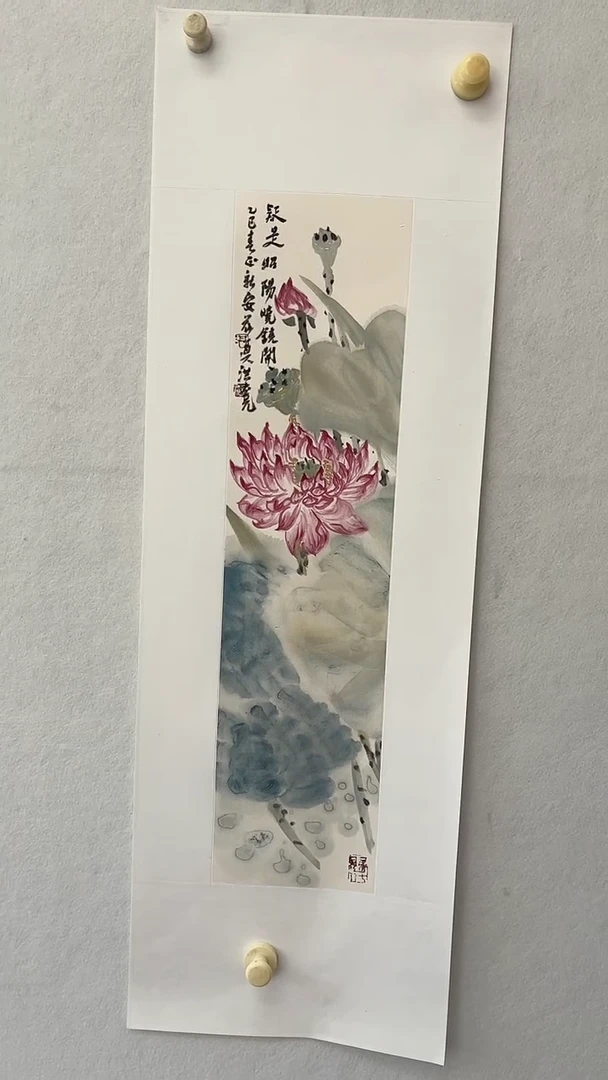 疑是昭陽曉鏡開
乙巳春正新安
洪亮